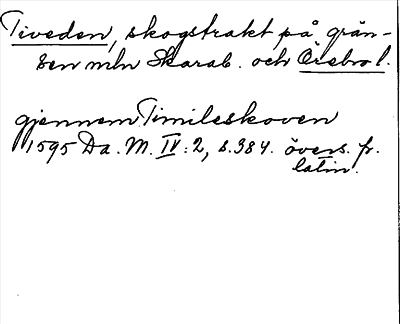 Tiveden, skogstrakt på grän-
sen mln Skarab. och Örebro l.
gjennem Timileskoven
1595 Da. M. IV: 2, s. 384. övers. fr.
latin.